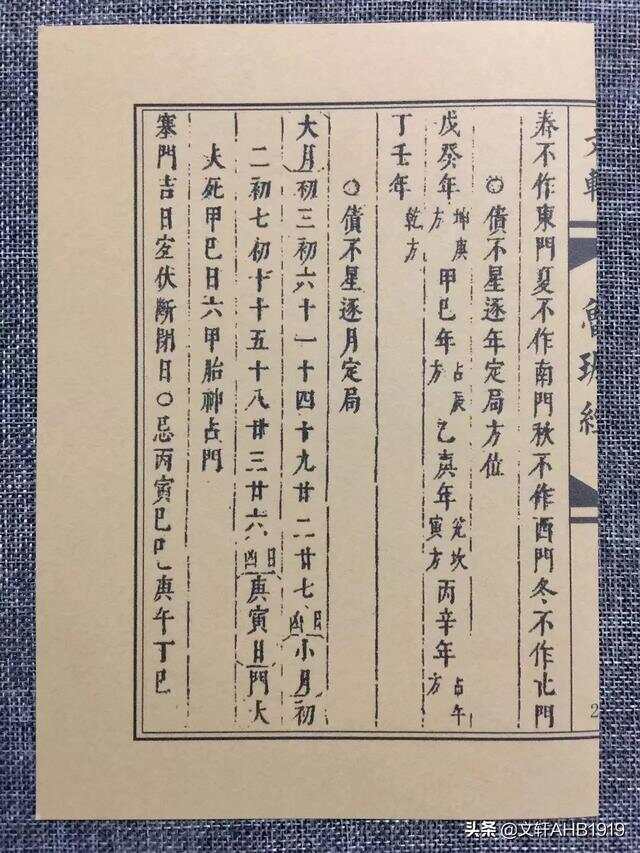 文軒 魯班經
2
春不作東門夏不作南門秋不作西門冬不作北門
○債不星逐年定局方位
戊癸年坤庚方甲巳年占辰方乙庚年兌坎寅方丙辛年占午方
丁壬年乾方
○債不星逐月定局
大月初三初六十一十四十九廿二廿七日凶小月初
二初七初十十五十八廿三廿六日凶庚寅日門大
夫死甲巳日六甲胎神占門
塞門吉日宜伏斷閉日○忌丙寅巳巳庚午丁巳
头条 @文轩AHB1919